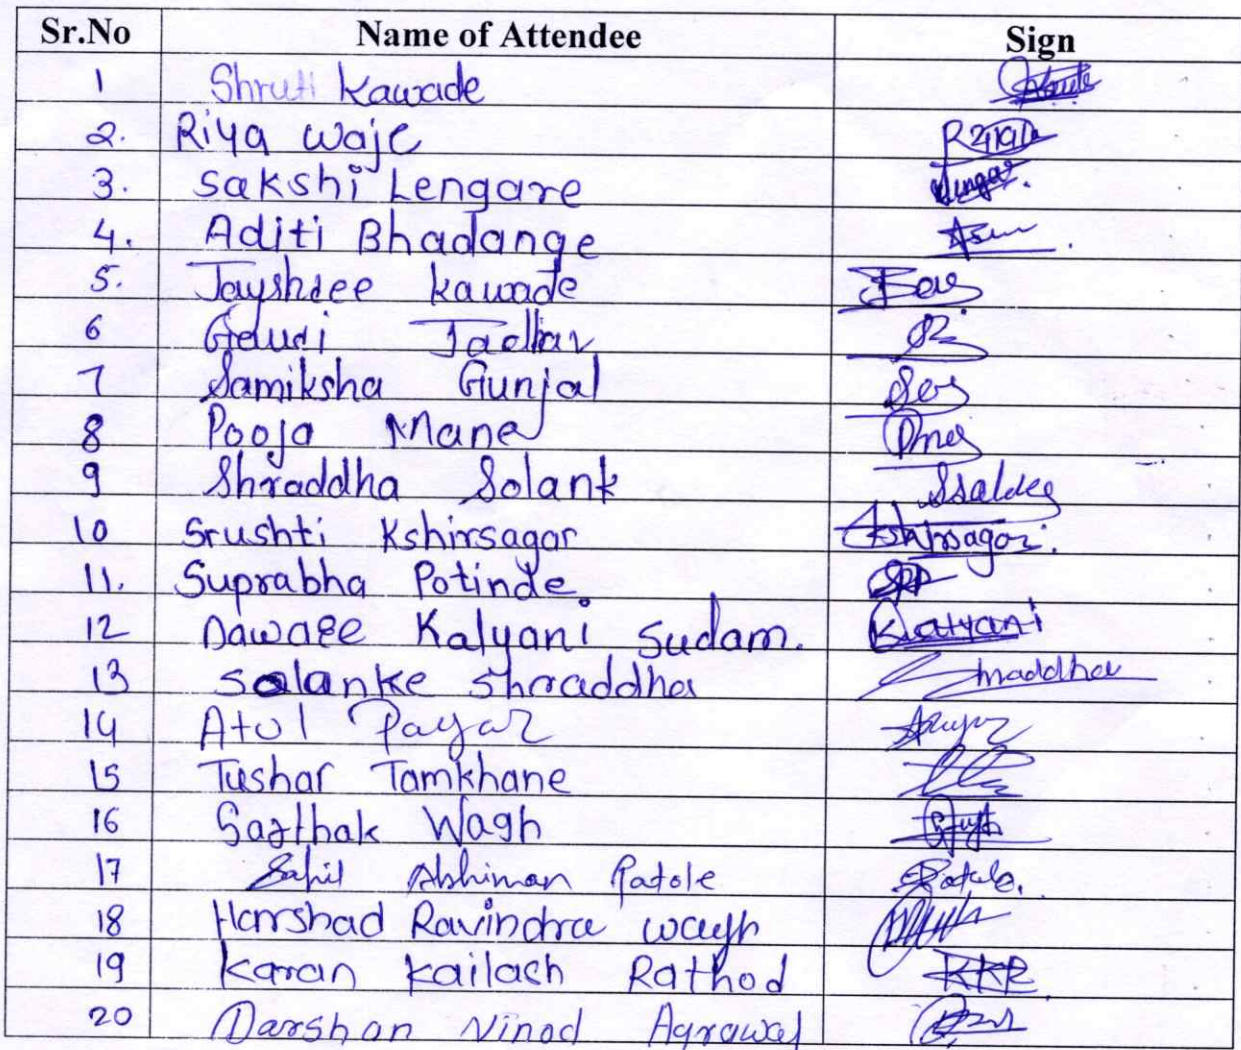 Sr.No Name of Attendee Sign
1 Shruti Kawade
2. Riya waje Riya
3. Sakshi Lengare
4. Aditi Bhadange
5. Jayshree Kawade
6 Gauri Jadhav
7 Samiksha Gunjal
8 Pooja Mane
9 Shraddha Solank
10 Srushti Kshirsagar Kshirsagar.
11. Suprabha Potinde.
12 Daware Kalyani Sudam. Kalyani
13 Solanke Shraddha Shraddha
14 Atul Payar
15 Tushar Tamkhane
16 Sarthak Wagh
17 Sahil Abhiman Patole Patole.
18 Harshad Ravindra wagh
19 Karan Kailash Rathod KKR
20 Darshan Vinod Agrawal